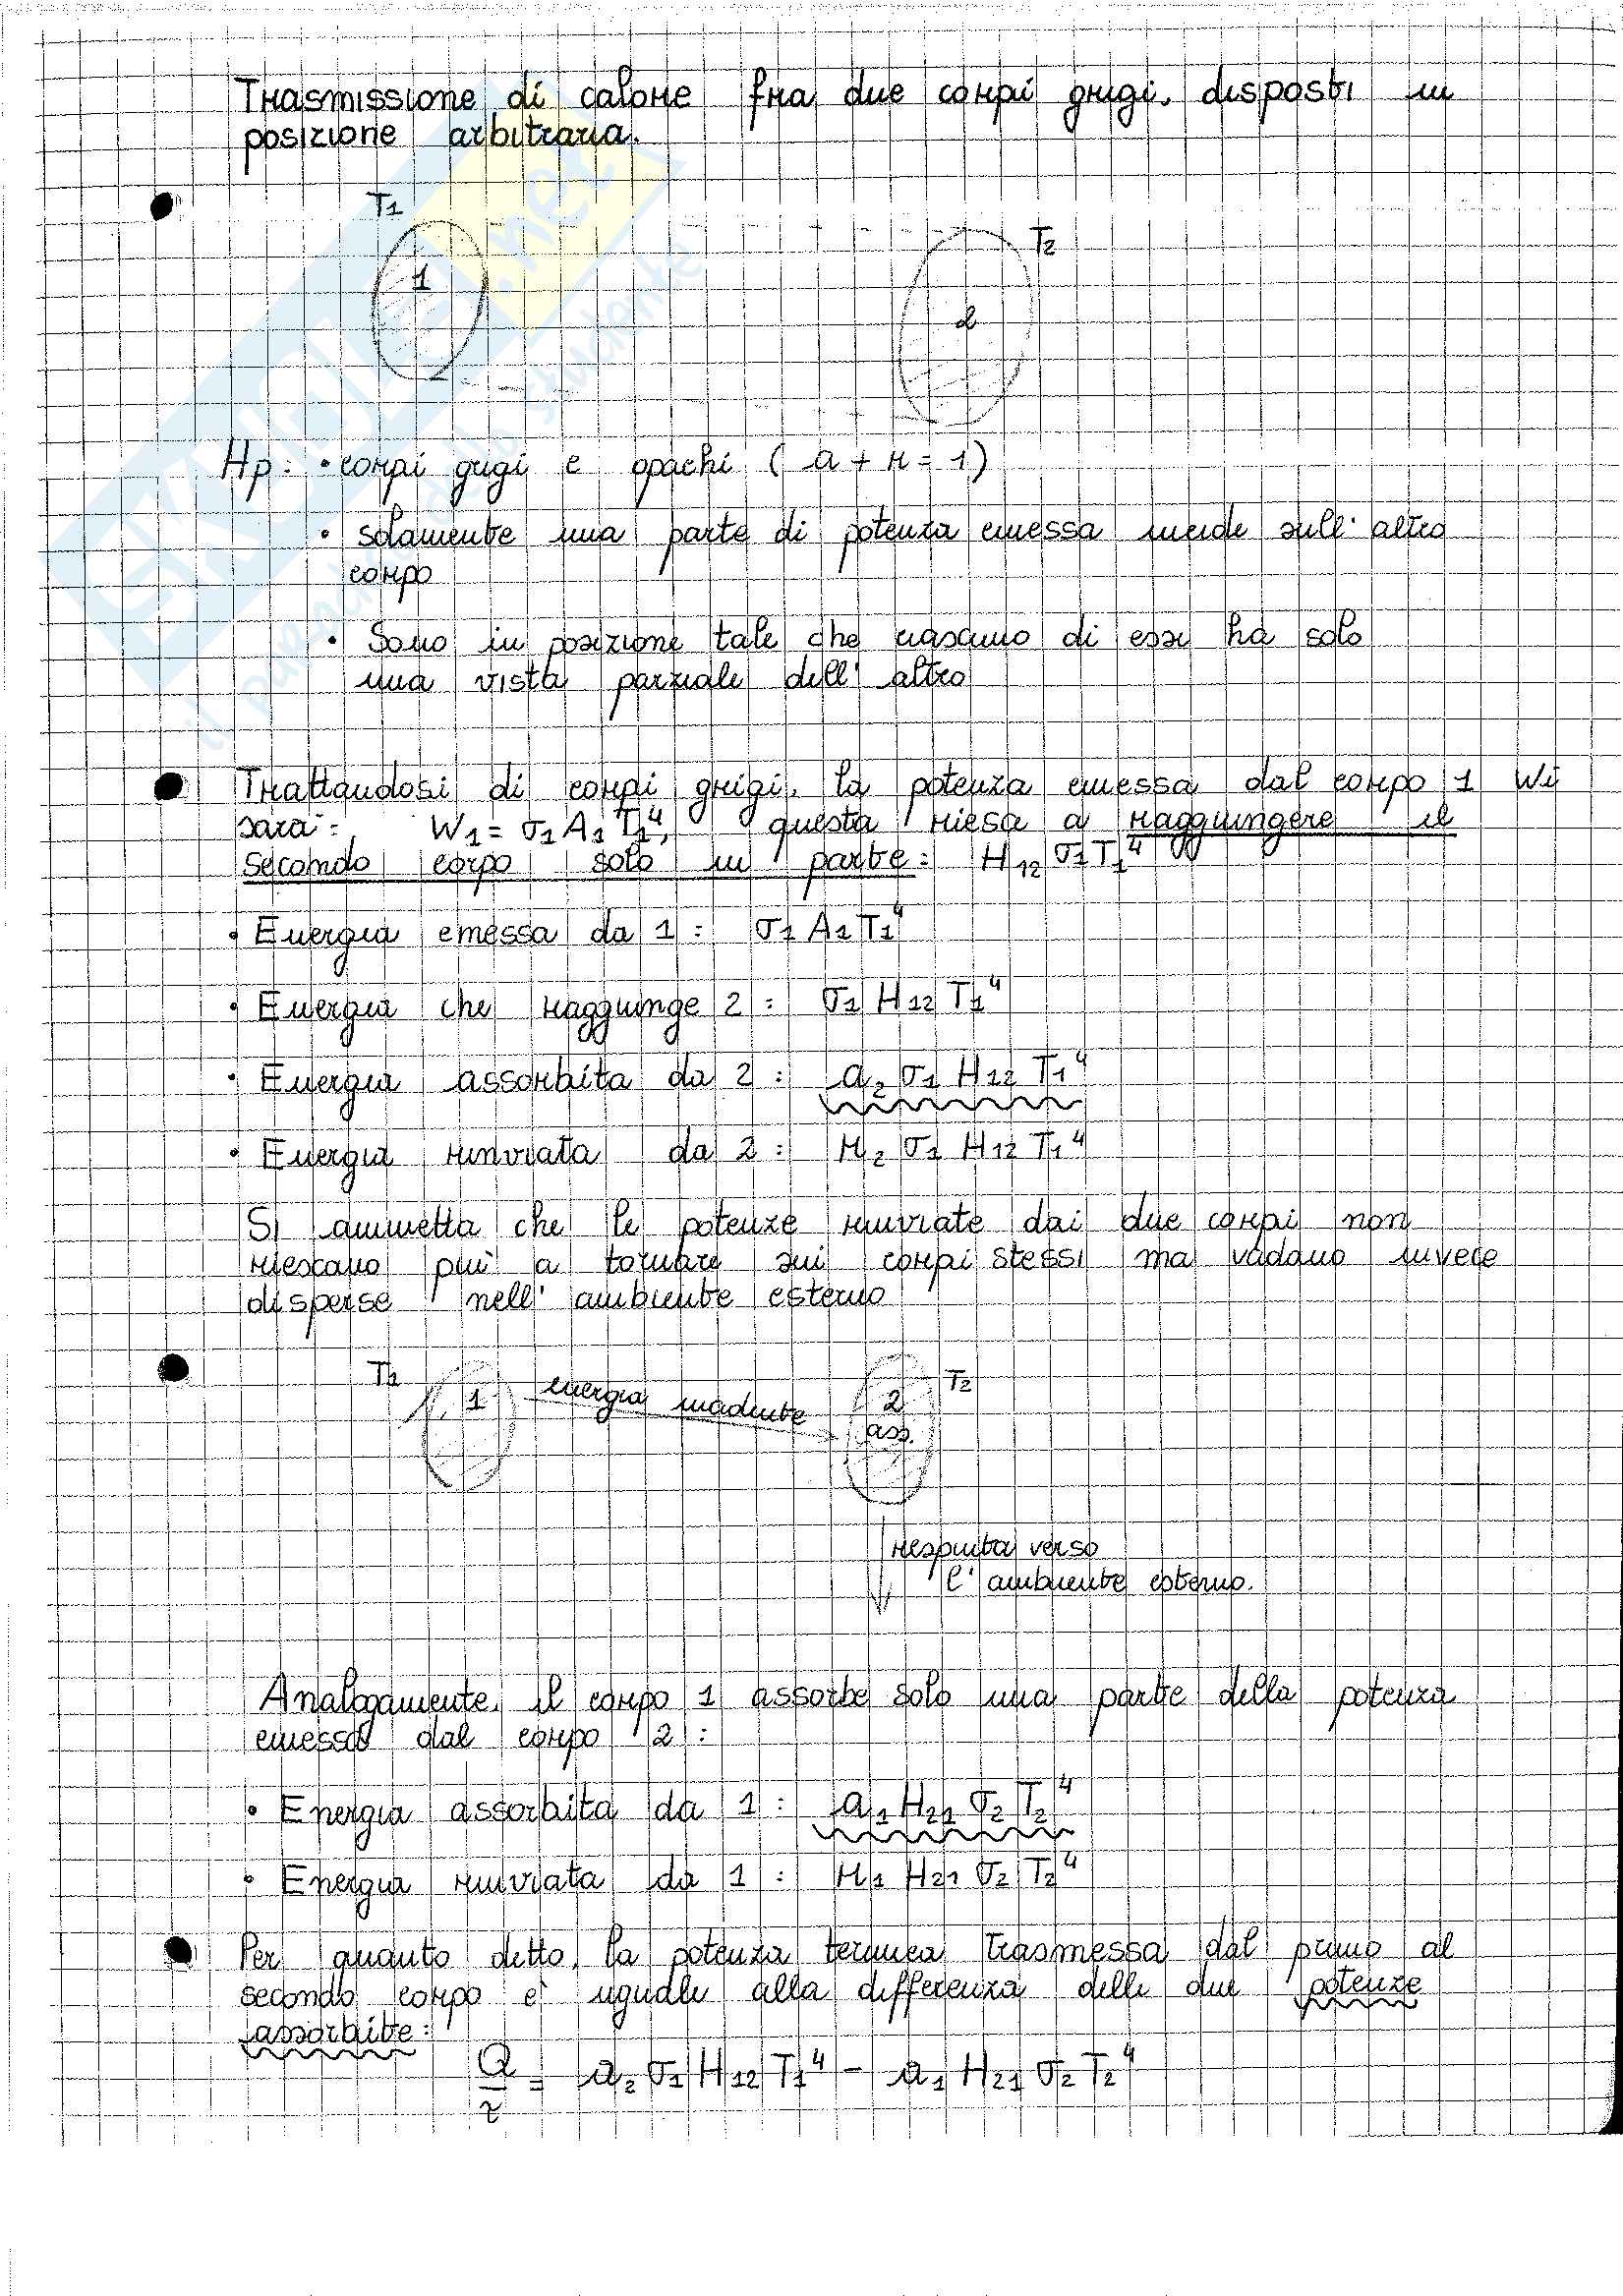 Trasmissione di calore fra due corpi grigi, disposti in
posizione arbitraria.
T₁
T₂
1
2
Hp: • corpi grigi e opachi ( a + r = 1 )
• solamente una parte di potenza emessa incide sull'altro
corpo
• Sono in posizione tale che ciascuno di essi ha solo
una vista parziale dell'altro
Trattandosi di corpi grigi, la potenza emessa dal corpo 1 W₁
sarà: W₁ = σ₁ A₁ T₁⁴, questa riesce a raggiungere il
secondo corpo solo in parte: H₁₂ σ₁ T₁⁴
• Energia emessa da 1: σ₁ A₁ T₁⁴
• Energia che raggiunge 2: σ₁ H₁₂ T₁⁴
• Energia assorbita da 2: a₂ σ₁ H₁₂ T₁⁴
• Energia rinviata da 2: r₂ σ₁ H₁₂ T₁⁴
Si ammetta che le potenze rinviate dai due corpi non
riescano più a tornare sui corpi stessi ma vadano invece
disperse nell'ambiente esterno
T₁ 1 energia incidente 2 T₂
ass.
respinta verso
l'ambiente esterno.
Analogamente, il corpo 1 assorbe solo una parte della potenza
emessa dal corpo 2:
• Energia assorbita da 1: a₁ H₂₁ σ₂ T₂⁴
• Energia rinviata da 1: r₁ H₂₁ σ₂ T₂⁴
Per quanto detto, la potenza termica trasmessa dal primo al
secondo corpo è uguale alla differenza delle due potenze
assorbite:
Q/τ = a₂ σ₁ H₁₂ T₁⁴ - a₁ H₂₁ σ₂ T₂⁴